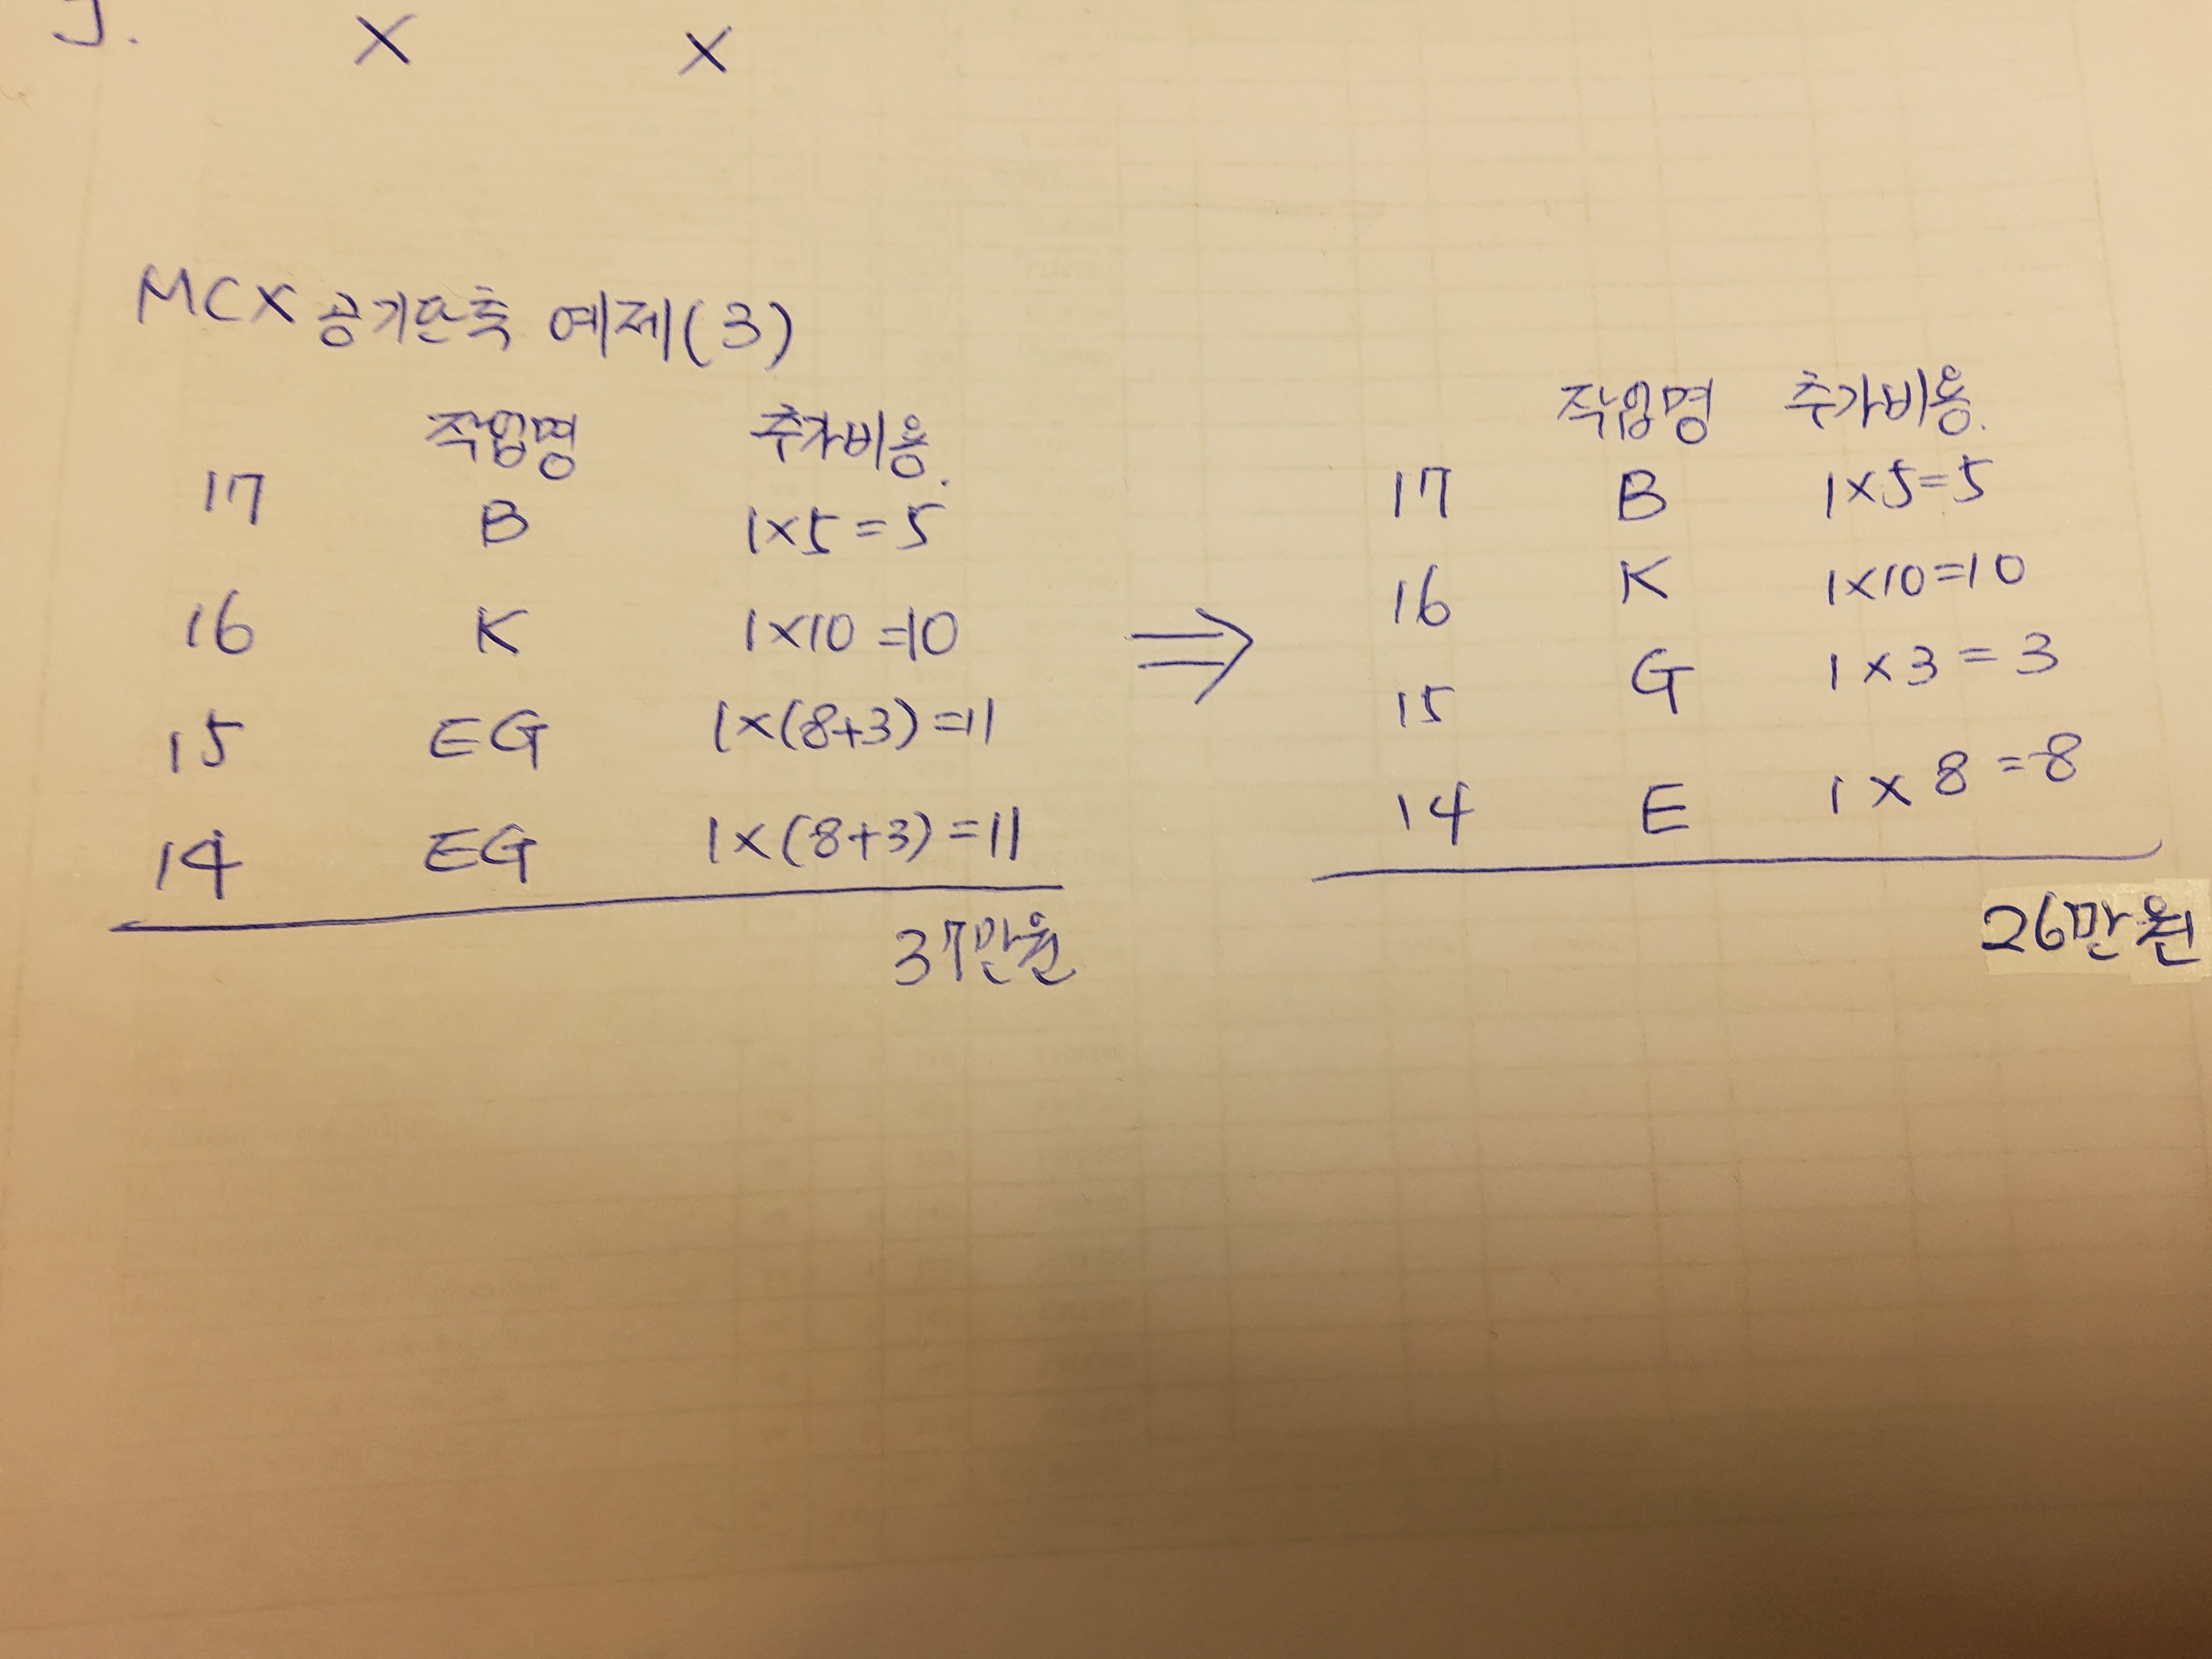 J. X X
MCX 공기단축 예제(3)
작업명 추가비용.
17 B 1×5=5
16 K 1×10=10
15 EG 1×(8+3)=11
14 EG 1×(8+3)=11
37만원
⇒
작업명 추가비용.
17 B 1×5=5
16 K 1×10=10
15 G 1×3=3
14 E 1×8=8
26만원